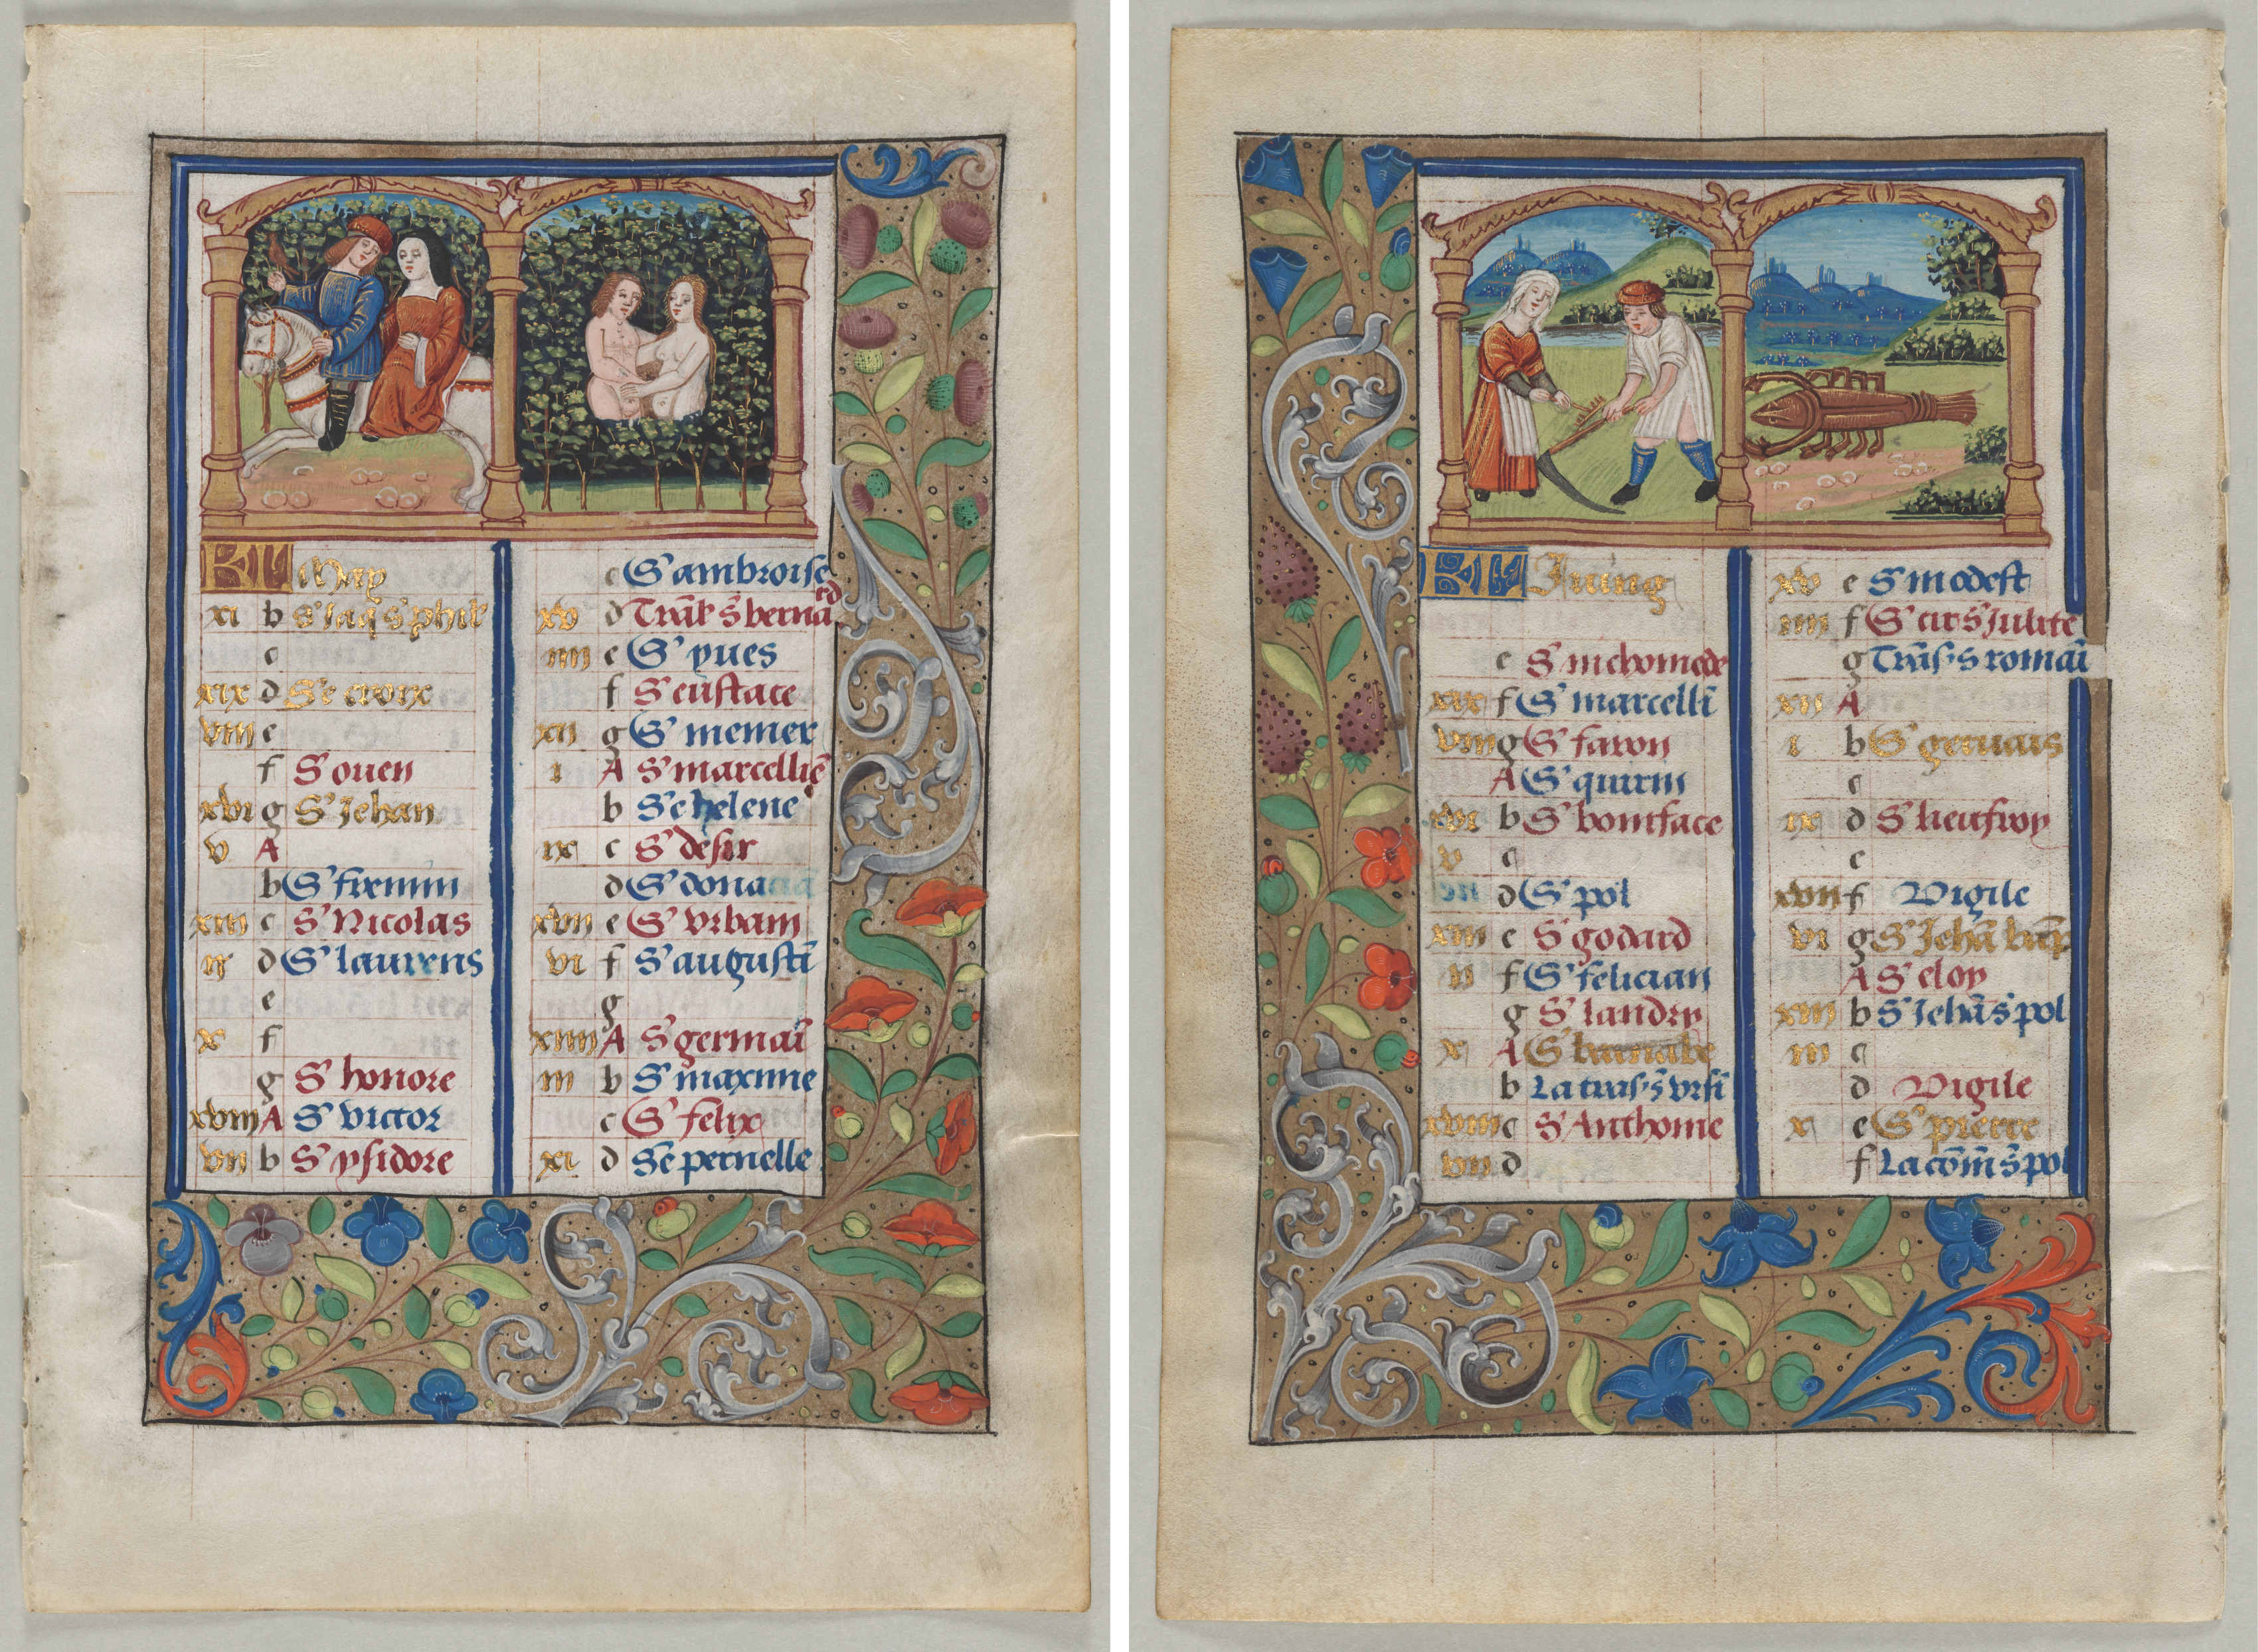 KL May
xi b S' Jaq̃ s̃ phil'
c
xix d Se croix
viii e
f S' ouen
xvi g S' Jehan
v A
b S' firmin
xiii c S' Nicolas
ii d S' laurens
e
x f
g S' honore
xviii A S' victor
vii b S' ysidore
c S' ambroise
xv d Trãsl s̃ bernard
iiii e S' yues
f S' eustace
xii g S' memer
i A S' marcelliẽ
b Se helene
ix c S' desir
d S' donaciã
xvii e S' vrbain
vi f S' augustĩ
g
xiiii A S' germaĩ
iii b S' maxime
c S' felix
xi d Sẽ pernelle
KL Juing
e S' nichomede
xix f S' marcellĩ
viii g S' faron
A S' quirin
xvi b S' boniface
v c
d S' pol
xiii e S' godard
ii f S' felician
g S' landry
x A S' barnabe
b La tras' s̃ vrsĩ
xviii c S' Anthoine
vii d
xv e S' modest
iiii f S' cir s̃ Julite
g Trãs' s romaĩ
xii A
i b S' geruais
c
ix d S' lieufroy
e
xvii f Vigile
vi g S' Jehã bap̃
A S' eloy
xiiii b S' Jehã s̃ pol
iii c
d Vigile
x e S' pierre
f La cõm̃ s̃ pol